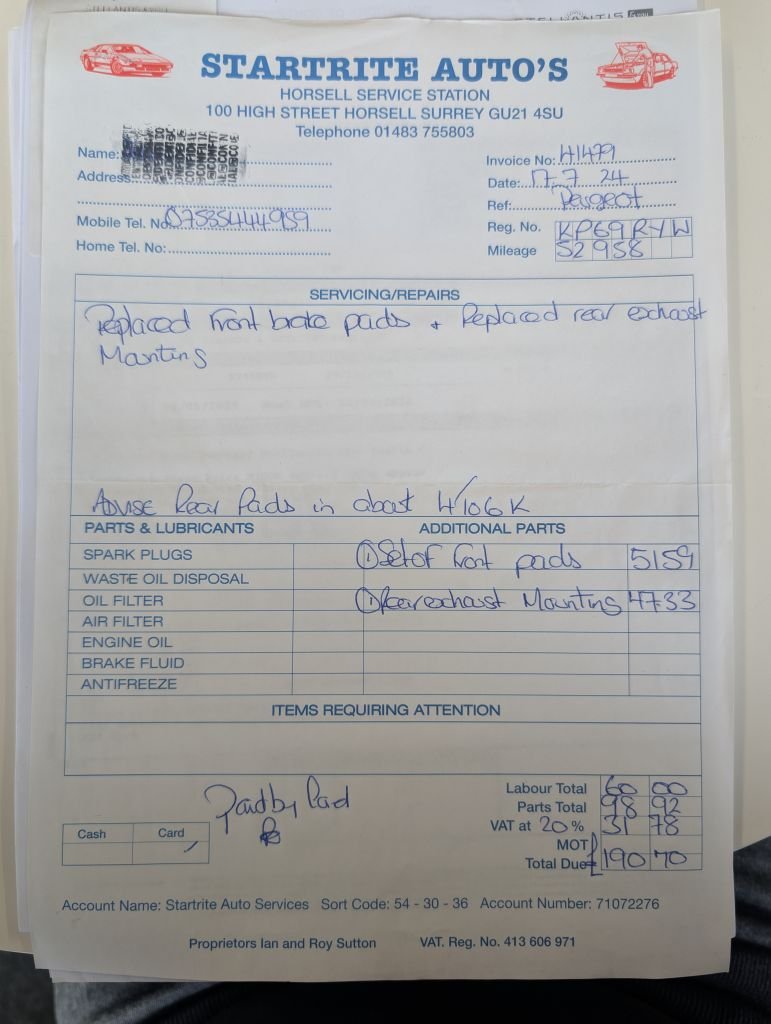 STELLANTIS &YOU
STELLANTIS &you
STARTRITE AUTO'S
HORSELL SERVICE STATION
100 HIGH STREET HORSELL SURREY GU21 4SU
Telephone 01483 755803
Name:
Invoice No: 41479
Address
Date: 17.7 24
Ref: Peugeot
Mobile Tel. No: 07535444959
Reg. No. KP69RYW
Home Tel. No:
Mileage 52958
SERVICING/REPAIRS
Replaced front brake pads + Replaced rear exhaust
Mounting
ADVISE Rear Pads in about
PARTS & LUBRICANTS ADDITIONAL PARTS
SPARK PLUGS ① Set of front pads 5159
WASTE OIL DISPOSAL
OIL FILTER ① Rear exhaust Mounting 4733
AIR FILTER
ENGINE OIL
BRAKE FLUID
ANTIFREEZE
ITEMS REQUIRING ATTENTION
Paid by Card
Labour Total 60 00
Parts Total 98 92
Cash Card
VAT at 20 % 31 78
MOT
Total Due £190 70
Account Name: Startrite Auto Services Sort Code: 54 - 30 - 36 Account Number: 71072276
Proprietors Ian and Roy Sutton VAT. Reg. No. 413 606 971